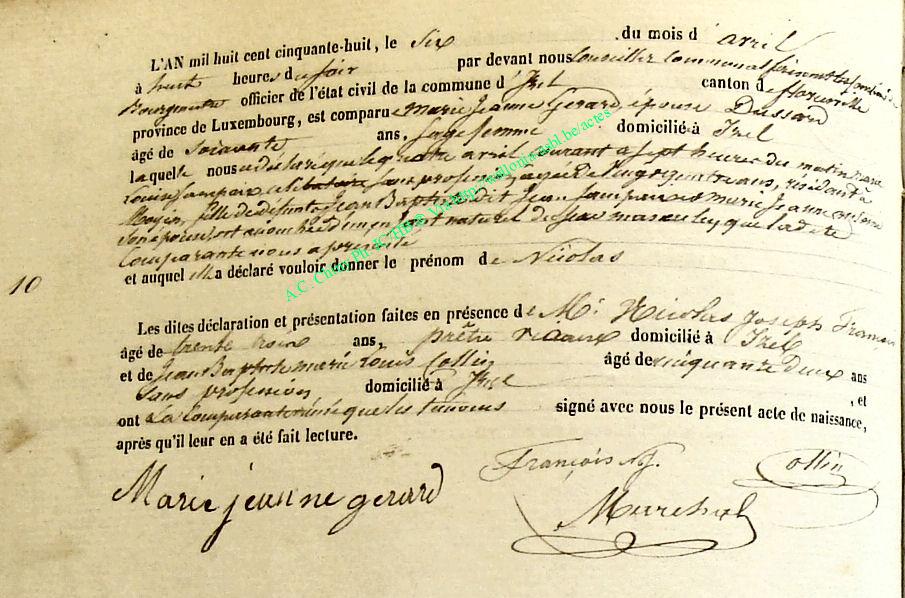 L'AN mil huit cent cinquante-huit, le six du mois d' avril
à huit heures du soir par devant nous Conseiller Communal
Bourgmestre officier de l'état civil de la commune d' Izel canton de Florenville
province de Luxembourg, est comparue Marie Jeanne Gerard, épouse Dussard
âgé de Soixante ans, sage femme domicilié à Izel
laquelle nous a déclaré que le quatre avril courant à sept heures du matin Marie
Louise célibataire sans profession, agée de vingt ans, résidant à
Moyen, fille de défunts Jean Baptiste dit Jean et Marie Jeanne
son épouse est accouchée d'un enfant naturel du sexe masculin, que ladite
comparante nous a présenté
et auquel elle a déclaré vouloir donner le prénom de Nicolas
10
Les dites déclaration et présentation faites en présence de Mr Nicolas Joseph François
âgé de trente trois ans, prêtre vicaire domicilié à Izel
et de Jean Baptiste Marie Louis Collin âgé de cinquante deux ans
sans profession domicilié à Izel , et
ont La Comparante ainsi que les témoins signé avec nous le présent acte de naissance,
après qu'il leur en a été fait lecture.
Marie jeanne gerard
François N. J.
Collin
Marechal